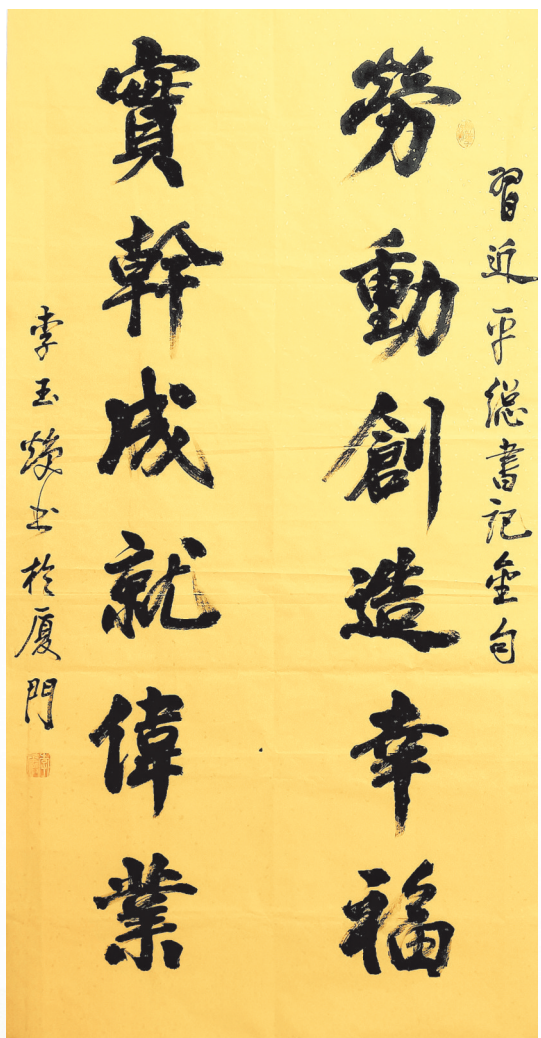 習近平總書記金句
勞動創造幸福
實幹成就偉業
李玉煐书於厦門